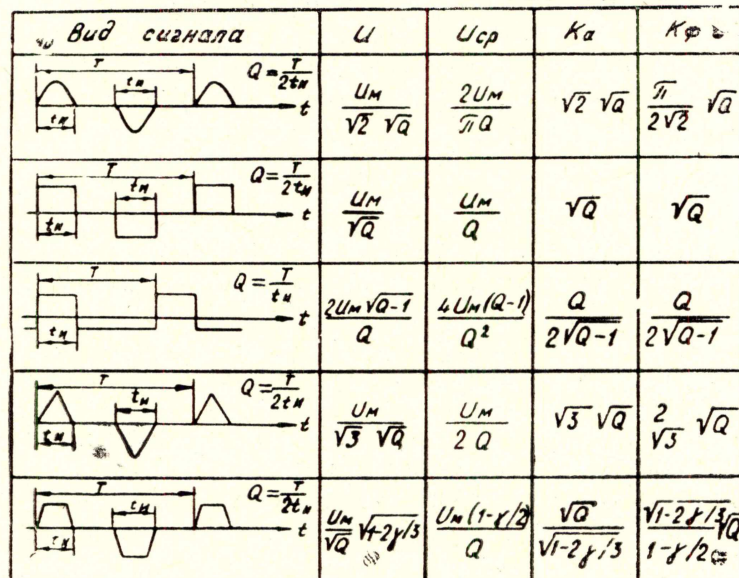 Вид сигнала U Uср Kа Kф
T tи tи Q=T/2tи t Uм/√2 √Q 2Uм/πQ √2 √Q π/2√2 √Q
T tи tи Q=T/2tи t Uм/√Q Uм/Q √Q √Q
T tи Q=T/tи t 2Uм√Q-1/Q 4Uм(Q-1)/Q² Q/2√Q-1 Q/2√Q-1
T tи tи Q=T/2tи t Uм/√3 √Q Uм/2Q √3 √Q 2/√3 √Q
T tи tи Q=T/2tи t Uм/√Q √1-2γ/3 Uм(1-γ/2)/Q √Q/√1-2γ/3 √1-2γ/3/1-γ/2 √Q